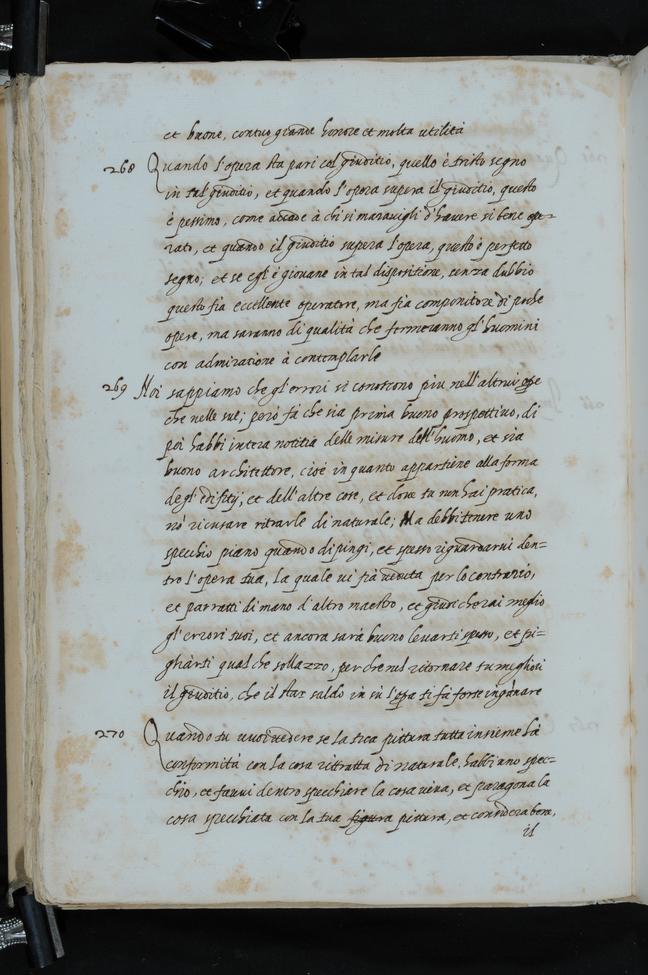 et buone, con tuo grande honore et molta utilità
268 Quando l'opera sta pari col giuditio, quello è tristo segno
in tal giuditio, et quando l'opera supera il giuditio, questo
è pessimo, come accade à chi si maravigli d'havere si bene ope=
rato, et quando il giuditio supera l'opera, questo è perfetto
segno; et se egl'è giovane in tal dispositione, senza dubbio
questo fia eccellente operatore, ma fia componitore di poche
opere, ma saranno di qualità che fermeranno gl'huomini
con admiratione à contemplarle
269 Noi sappiamo che gl'errori si conoscono piu nell'altrui ope
che nelle sue; però fà che sia prima buono prospettivo, di
poi habbi intera notitia delle misure dell'huomo, et sia
buono architettore, cioè in quanto appartiene alla forma
degl'edifitij, et dell'altre cose, et dove tu non hai pratica,
nò ricusare ritrarle di naturale; Ma debbi tenere uno
specchio piano quando dipingi, et spesso riguardarvi den=
tro l'opera tua, la quale vi fia veduta per lo contrario,
et parratti di mano d'altro maestro, et giudicherai meglio
gl'errori tuoi, et ancora sarà buono levarsi spesso, et pi=
gliarsi qualche sollazzo, perche nel ritornare tu migliori
il giuditio, che il star saldo in sù l'opa ti fà forte inganare
270 Quando tu vuoi vedere se la tua pittura tutta insieme hà
conformità con la cosa ritratta di naturale, habbi uno spec=
chio, et favvi dentro specchiare la cosa viva, et paragona la
cosa specchiata con la tua figura pittura, et considera bene,
il